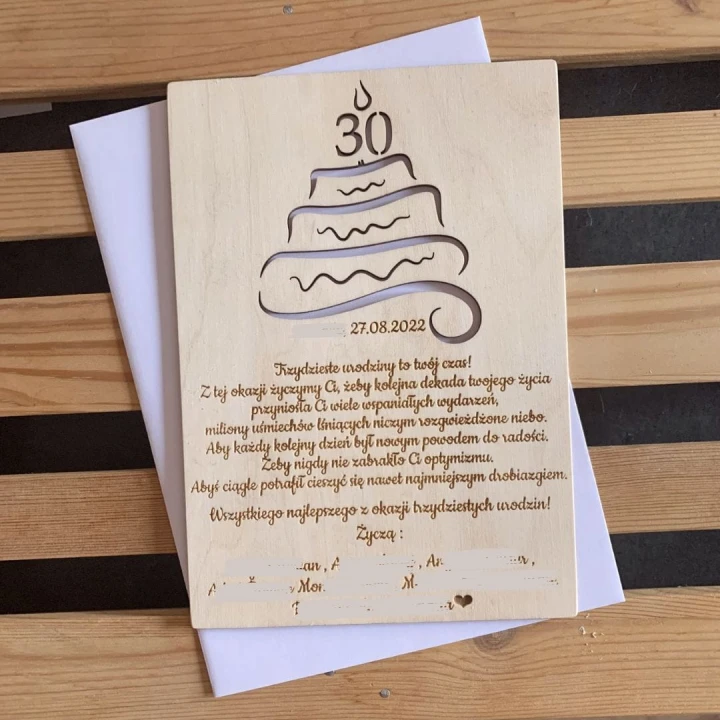 30
27.08.2022
Trzydzieste urodziny to twój czas!
Z tej okazji życzymy Ci, żeby kolejna dekada twojego życia
przyniosła Ci wiele wspaniałych wydarzeń,
miliony uśmiechów lśniących niczym rozgwieżdżone niebo.
Aby każdy kolejny dzień był nowym powodem do radości.
Żeby nigdy nie zabrakło Ci optymizmu.
Abyś ciągle potrafił cieszyć się nawet najmniejszym drobiazgiem.
Wszystkiego najlepszego z okazji trzydziestych urodzin!
Życzą :